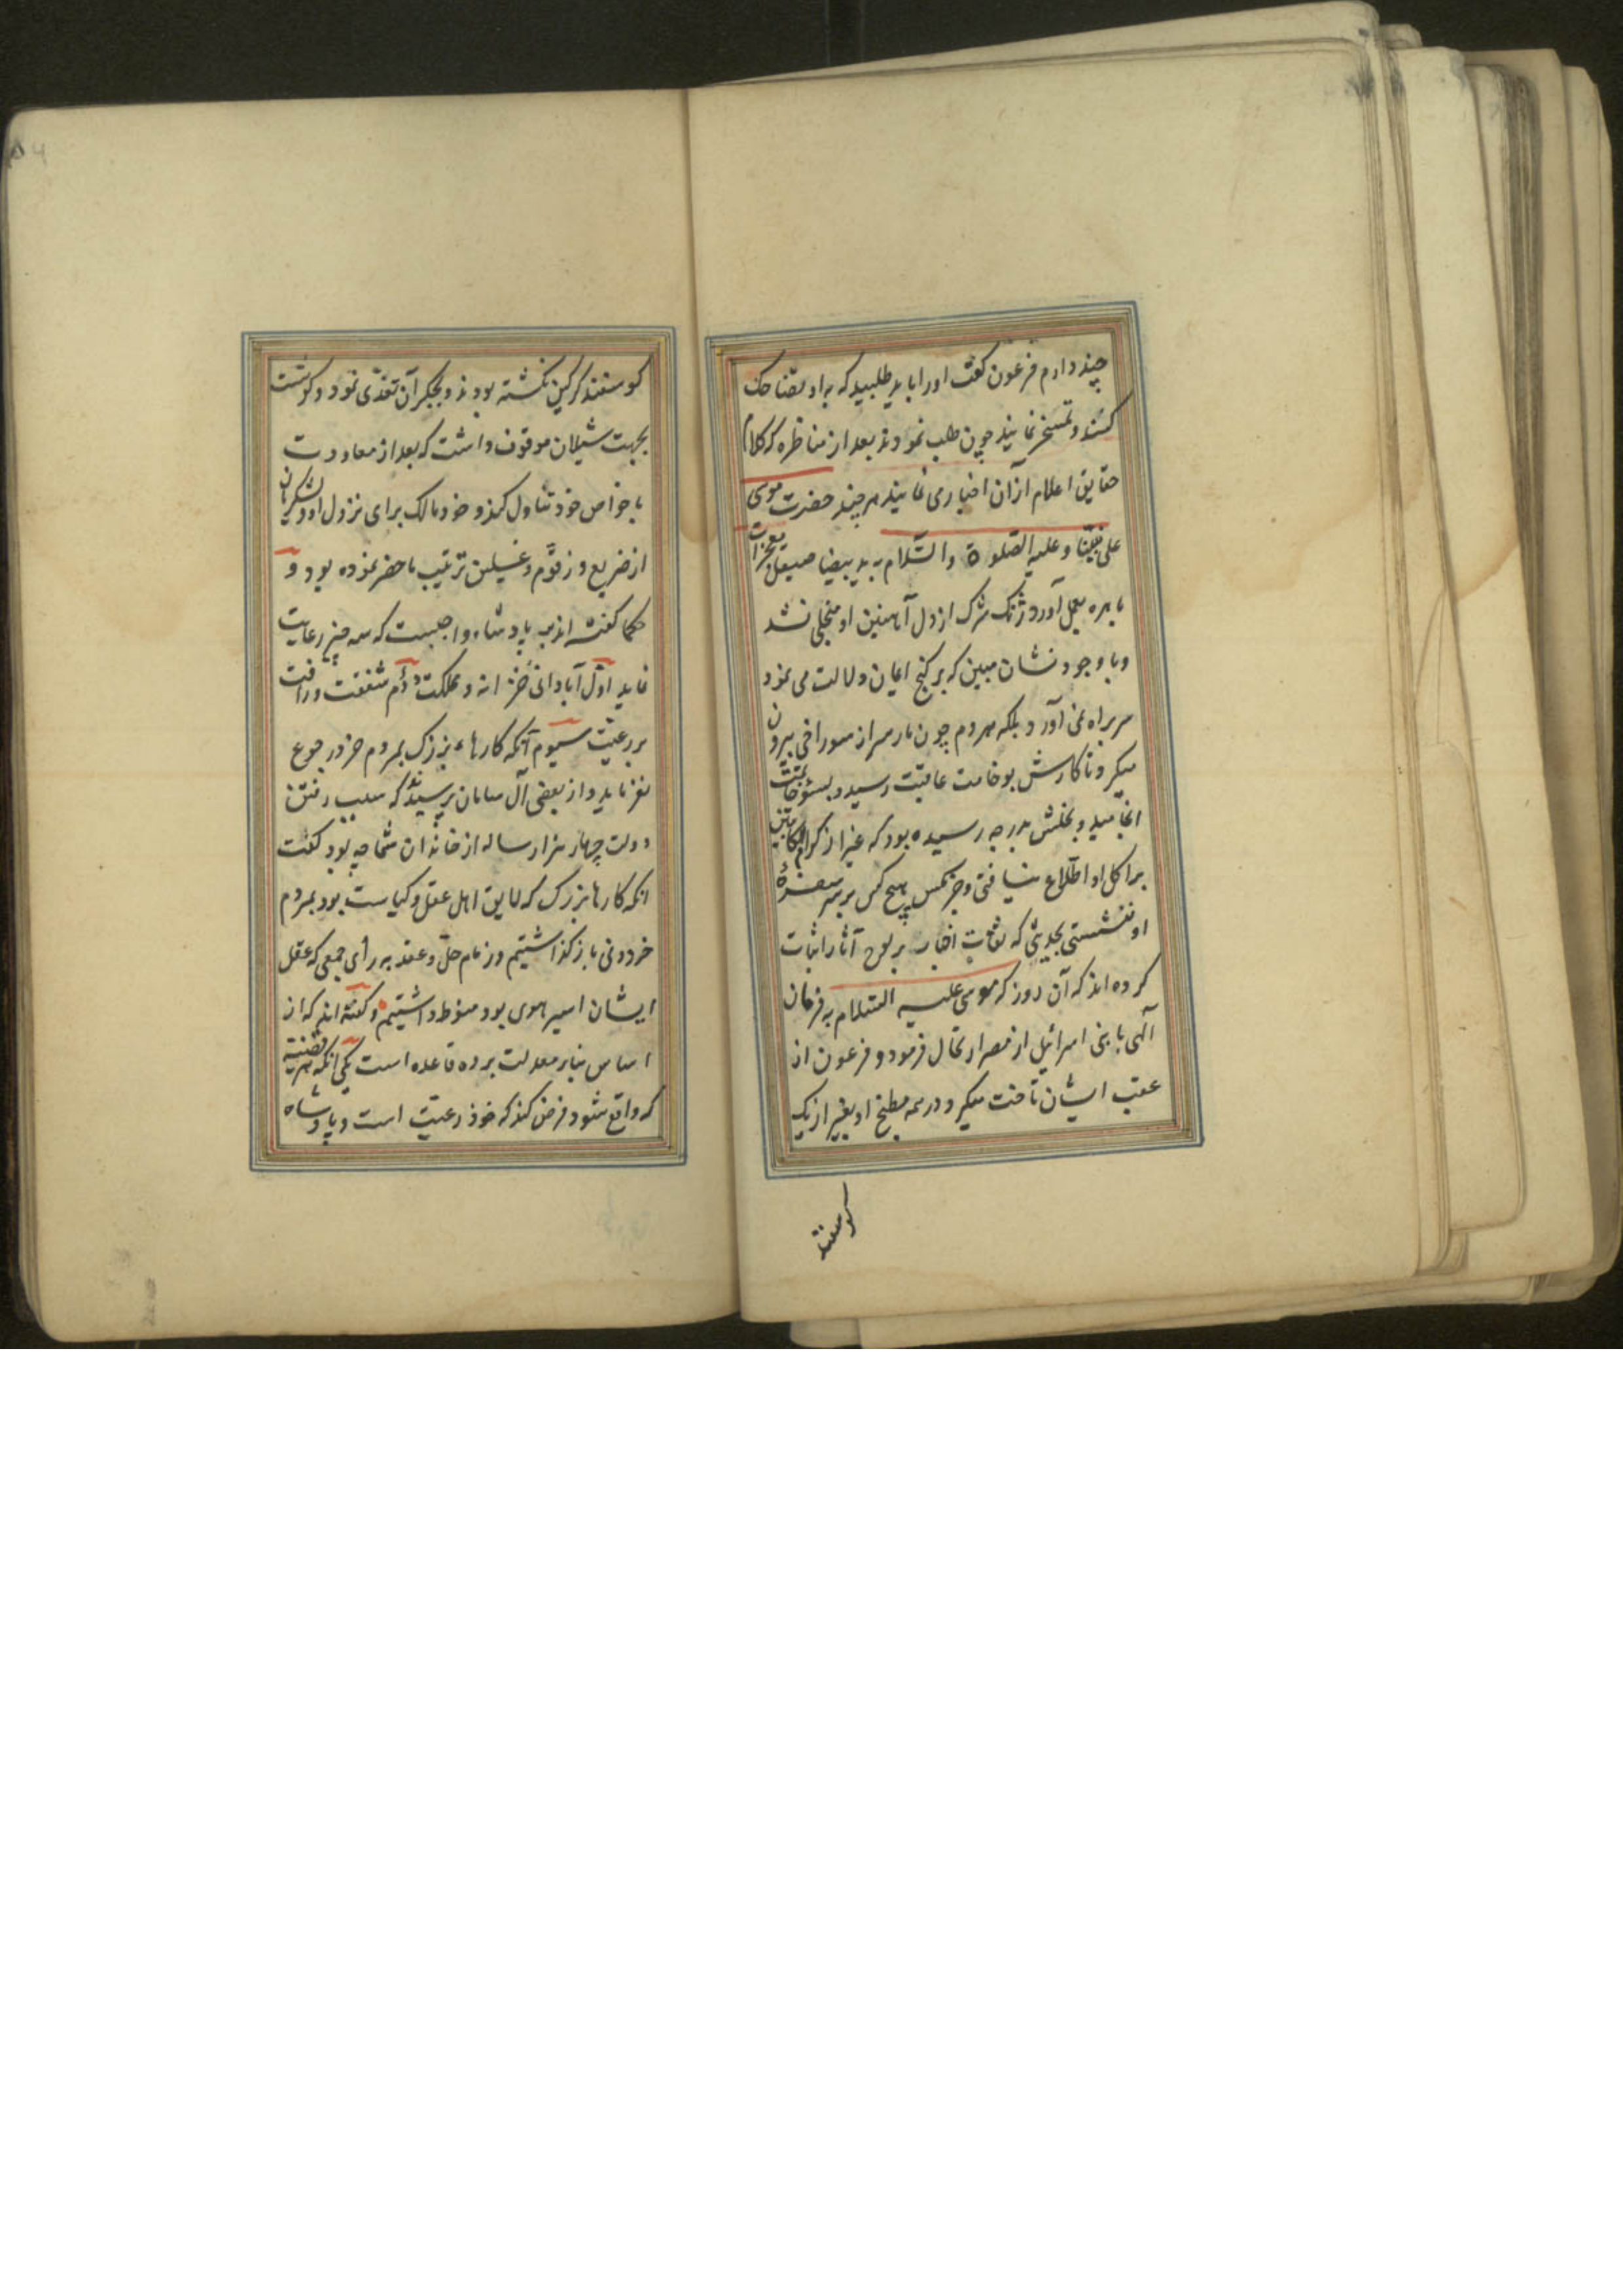 چند دارم فرعون کفت اورا باید طلبید که به او تضاحک
کنند و تمسخر نمایند چون طلب نمودند بعد از مناظره که کلام
حقایق اعلام از آن اخبار می نماید هر چند حضرت موسی
علی نبینا و علیه الصلوة والسّلام به ید بیضا صیقل معجزات
باهره بعمل آورد ژنک شرک از دل آهنین او منجلی نشد
و با وجود نشان مبین که بر کنج ایمان دلالت می نمود
سر براه نمی آورد و بلکه هر دم چون مار سر از سوراخی بیرون
میکرد تا کارش بوخامت عاقبت رسید و بسوء خاتمت
انجامید و بخلش بدرجه رسیده بود که غیر از کرام الکاتبین
بر اکل او اطّلاع نیافتی و جز مکس هیچ کس بر سر سفرهٔ
او ننشستی بحدیثی که ثقات اخبار بر لوح آثار اثبات
کرده اند که آن روز که موسی علیه السّلام به فرمان
آلهی با بنی اسرائیل از مصر ارتحال فرمود و فرعون از
عقب ایشان تاخت میکرد در همه مطبخ او بغیر از یک
کوسفند
کوسفند کرکین نکشته بودند و بجکر آن تغذّی نمود و کوشت
بجهت شیلان موقوف داشت که بعد از معاودت
با خواص خود تناول کند و خود مالک برای نزول او و لشکریان
از ضریع و زقّوم و غسلین ترتیب ماحضر نموده بود و
حکما کفته اند بر پادشاه واجبست که سه چیز رعایت
نماید اوّل آبادانی خزانه و مملکت دوّم شفقت و رافت
بر رعیّت سیوم آنکه کارهاء بزرک بمردم خرد رجوع
نفرماید و از بعضی آل سامان پرسیدند که سبب رفتن
دولت چهار هزار ساله از خاندان شما چه بود کفت
انکه کارها بزرک که لایق اهل عقل و کیاست بود بمردم
خرد و نی باز کذاشتیم و زمام حلّ و عقد به رأی جمعی که عقل
ایشان اسیر هوی بود منوط داشتیم و کفته اند که از
اساس بنابر معدلت بر ده قاعده است یکی انکه هر قضیّه
که واقع شود فرض کند که خود رعیّت است و پادشاه